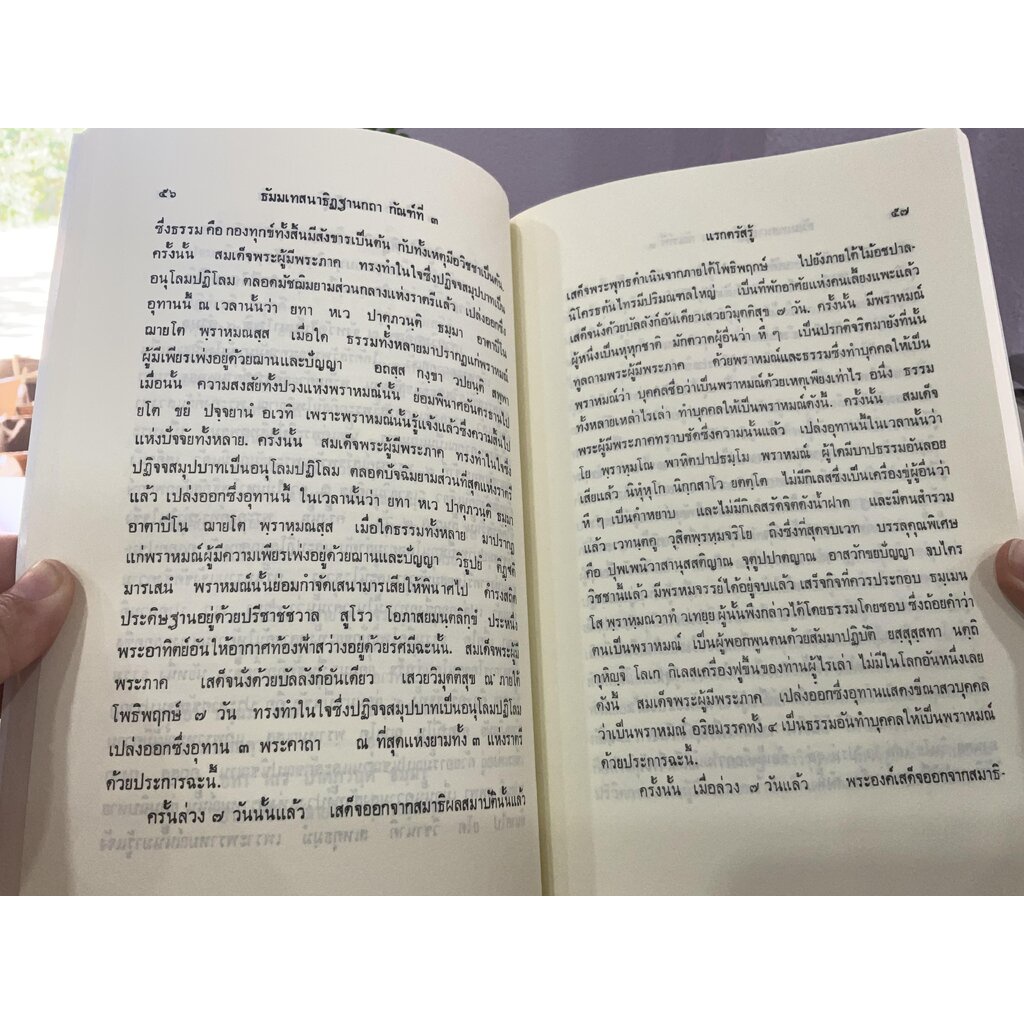 ๕๖ ธัมมเทสนาธิฏฐานกถา กัณฑ์ที่ ๓
ซึ่งธรรม คือ กองทุกข์ทั้งสิ้นมีสังขารเป็นต้น กับทั้งเหตุมีอวิชชาเป็นต้น
ครั้งนั้น สมเด็จพระผู้มีพระภาค ทรงทำในใจซึ่งปฏิจจสมุปบาทเป็น
อนุโลมปฏิโลม ตลอดมัชฌิมยามส่วนกลางแห่งราตรีแล้ว เปล่งออกซึ่ง
อุทานนี้ ณ เวลานั้นว่า ยทา หเว ปาตุภวนฺติ ธมฺมา อาตาปิโน
ฌายโต พฺราหฺมณสฺส เมื่อใด ธรรมทั้งหลายมาปรากฏแก่พราหมณ์
ผู้มีเพียรเพ่งอยู่ด้วยฌานและปัญญา อถสฺส กงฺขา วปยนฺติ สพฺพา
เมื่อนั้น ความสงสัยทั้งปวงแห่งพราหมณ์นั้น ย่อมพินาศอันตรธานไป
ยโต ขยํ ปจฺจยานํ อเวทิ เพราะพราหมณ์นั้นรู้แจ้งแล้วซึ่งความสิ้นไป
แห่งปัจจัยทั้งหลาย. ครั้งนั้น สมเด็จพระผู้มีพระภาค ทรงทำในใจซึ่ง
ปฏิจจสมุปบาทเป็นอนุโลมปฏิโลม ตลอดปัจฉิมยามส่วนที่สุดแห่งราตรี
แล้ว เปล่งออกซึ่งอุทานนี้ ในเวลานั้นว่า ยทา หเว ปาตุภวนฺติ ธมฺมา
อาตาปิโน ฌายโต พฺราหฺมณสฺส เมื่อใดธรรมทั้งหลาย มาปรากฏ
แก่พราหมณ์ผู้มีความเพียรเพ่งอยู่ด้วยฌานและปัญญา วิธูปยํ ติฏฺฐติ
มารเสนํ พราหมณ์นั้นย่อมกำจัดเสนามารเสียให้พินาศไป ดำรงสถิต
ประดิษฐานอยู่ด้วยปรีชาชัชวาล สูโรว โอภาสยมนฺตลิกฺขํ ประหนึ่ง
พระอาทิตย์อันให้อากาศท้องฟ้าสว่างอยู่ด้วยรัศมีฉะนั้น. สมเด็จพระผู้มี
พระภาค เสด็จนั่งด้วยบัลลังก์อันเดียว เสวยวิมุตติสุข ณ ภายใต้
โพธิพฤกษ์ ๗ วัน ทรงทำในใจซึ่งปฏิจจสมุปบาทเป็นอนุโลมปฏิโลม
เปล่งออกซึ่งอุทาน ๓ พระคาถา ณ ที่สุดแห่งยามทั้ง ๓ แห่งราตรี
ด้วยประการฉะนี้.
ครั้นล่วง ๗ วันนั้นแล้ว เสด็จออกจากสมาธิผลสมาบัตินั้นแล้ว
แรกตรัสรู้ ๕๗
เสด็จพระพุทธดำเนินจากภายใต้โพธิพฤกษ์ ไปยังภายใต้ไม้อชปาล-
นิโครธต้นไทรมีปริมณฑลใหญ่ เป็นที่พักอาศัยแห่งคนเลี้ยงแพะแล้ว
เสด็จนั่งด้วยบัลลังก์อันเดียวเสวยวิมุตติสุข ๗ วัน. ครั้งนั้น มีพราหมณ์
ผู้หนึ่งเป็นหุหุกชาติ มักตวาดผู้อื่นว่า หึ ๆ เป็นปรกติจริตมายังที่นั้น
ทูลถามพระผู้มีพระภาค ด้วยพราหมณ์และธรรมซึ่งทำบุคคลให้เป็น
พราหมณ์ว่า บุคคลชื่อว่าเป็นพราหมณ์ด้วยเหตุเพียงเท่าไร อนึ่ง ธรรม
ทั้งหลายเหล่าไรเล่า ทำบุคคลให้เป็นพราหมณ์ดังนี้. ครั้งนั้น สมเด็จ
พระผู้มีพระภาคทราบชัดซึ่งความนั้นแล้ว เปล่งอุทานนี้ในเวลานั้นว่า
โย พฺราหฺมโณ พาหิตปาปธมฺโม พราหมณ์ ผู้ใดมีบาปธรรมอันลอย
เสียแล้ว นิหุํหุโก นิกฺกสาโว ยตตฺโต ไม่มีกิเลสซึ่งเป็นเครื่องขู่ผู้อื่นว่า
หึ ๆ เป็นคำหยาบ และไม่มีกิเลสรัดจิตดังน้ำฝาด และมีตนสำรวม
แล้ว เวทนฺตคู วุสิตพฺรหฺมจริโย ถึงซึ่งที่สุดจบเวท บรรลุคุณพิเศษ
คือ ปุพเพนิวาสานุสสติญาณ จุตูปปาตญาณ อาสวักขยปัญญา จบไตร
วิชชานี้แล้ว มีพรหมจรรย์ได้อยู่จบแล้ว เสร็จกิจที่ควรประกอบ ธมฺเมน
โส พฺราหฺมณวาทํ วเทยฺย ผู้นั้นพึงกล่าวได้โดยธรรมโดยชอบ ซึ่งถ้อยคำว่า
ตนเป็นพราหมณ์ เป็นผู้พอกพูนตนด้วยสัมมาปฏิบัติ ยสฺสุสฺสทา นตฺถิ
กุหิญฺจิ โลเก กิเลสเครื่องฟูขึ้นของท่านผู้ไรเล่า ไม่มีในโลกอันหนึ่งเลย
ดังนี้ สมเด็จพระผู้มีพระภาค เปล่งออกซึ่งอุทานแสดงขีณาสวบุคคล
ว่าเป็นพราหมณ์ อริยมรรคทั้ง ๔ เป็นธรรมอันทำบุคคลให้เป็นพราหมณ์
ด้วยประการฉะนี้.
ครั้งนั้น เมื่อล่วง ๗ วันแล้ว พระองค์เสด็จออกจากสมาธิ-